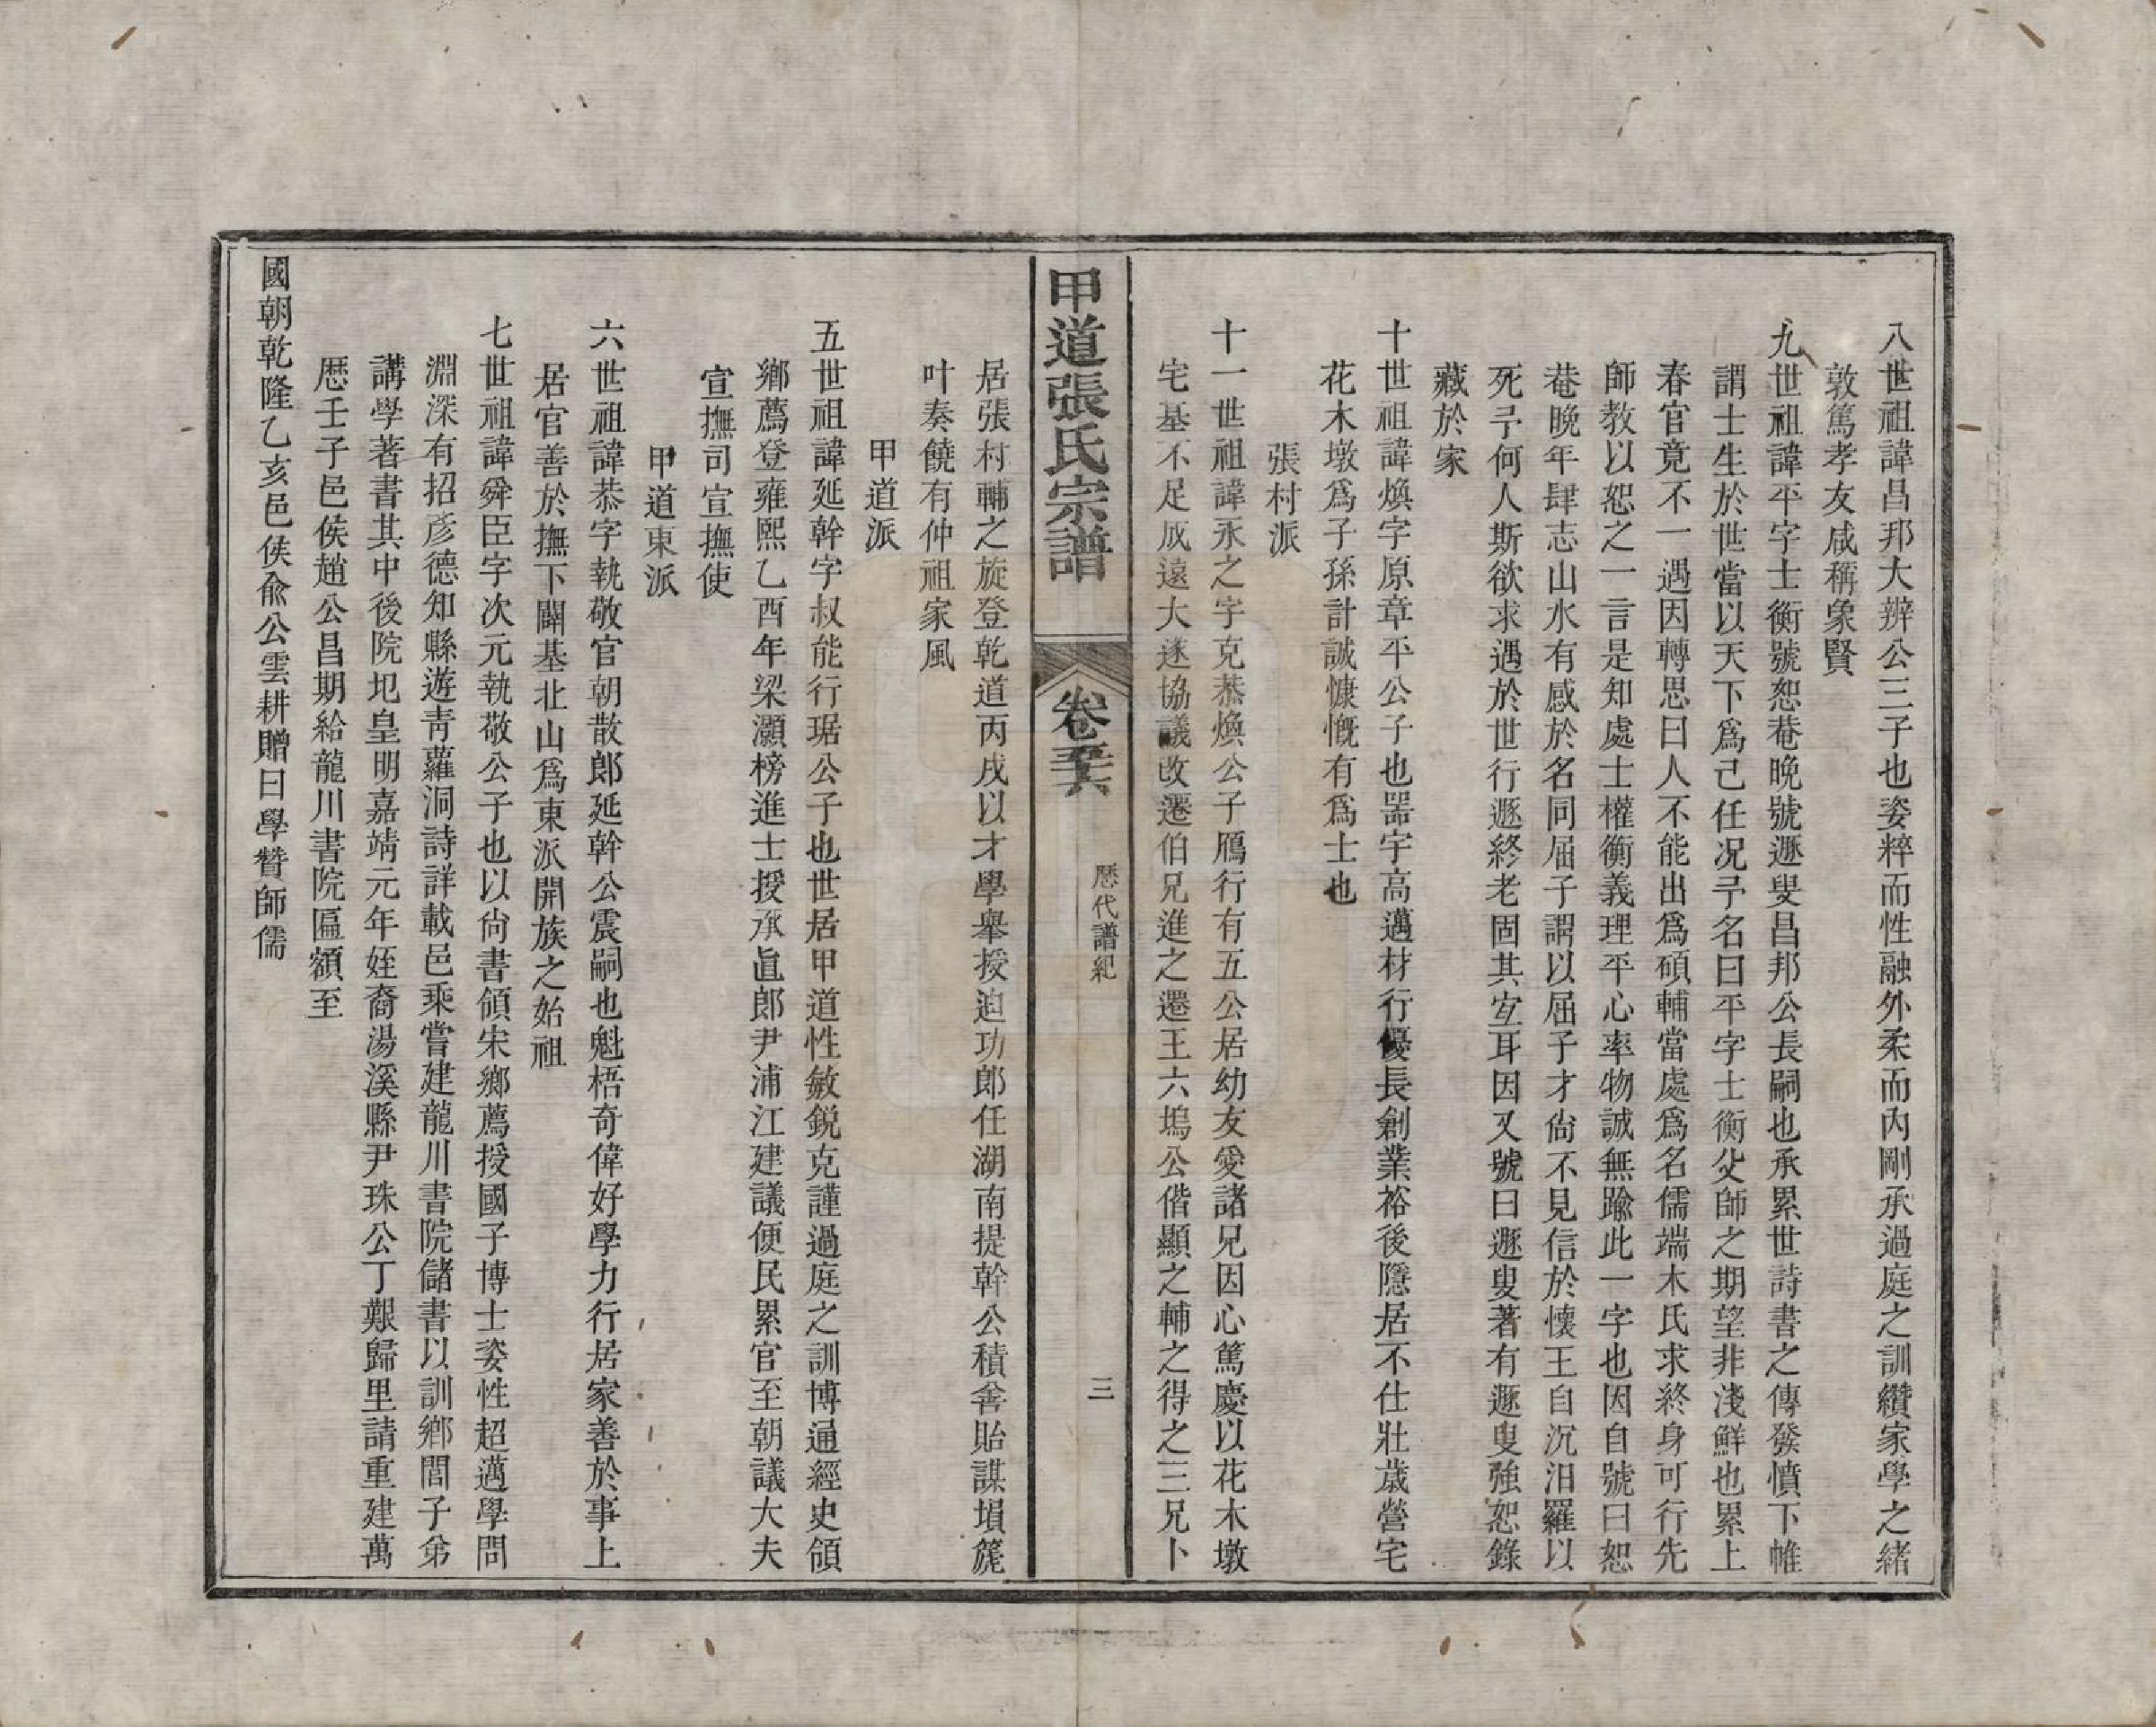 八世祖諱昌邦大辨公三子也姿粹而性融外柔而內剛承過庭之訓纘家學之緒
敦篤孝友咸稱象賢
九世祖諱平字士衡號恕菴晚號遯叟昌邦公長嗣也承累世詩書之傳發憤下帷
謂士生於世當以天下爲己任況予名曰平字士衡父師之期望非淺鮮也累上
春官竟不一遇因轉思曰人不能出爲碩輔當處爲名儒端木氏求終身可行先
師教以恕之一言是知處士權衡義理平心率物誠無踰此一字也因自號曰恕
菴晚年肆志山水有感於名同屈子謂以屈子才尙不見信於懷王自沉汨羅以
死予何人斯欲求遇於世行遯終老固其宜耳因又號曰遯叟著有遯叟強恕錄
藏於家
十世祖諱煥字原章平公子也噐宇高邁材行優長創業裕後隱居不仕壯歳營宅
花木墩爲子孫計誠慷慨有爲士也
張村派
十一世祖諱永之字克恭煥公子鴈行有五公居幼友愛諸兄因心篤慶以花木墩
宅基不足成遠大遂協議改遷伯兄進之遷王六塢公偕顯之輔之得之三兄卜
甲道張氏宗譜
卷五六
歷代譜紀
三
居張村輔之旋登乾道丙戌以才學舉授迪功郎任湖南提幹公積善貽謀塤篪
叶奏饒有仲祖家風
甲道派
五世祖諱延幹字叔能行琚公子也世居甲道性敏銳克謹過庭之訓博通經史領
鄉薦登雍熙乙酉年梁灝榜進士授承直郎尹浦江建議便民累官至朝議大夫
宣撫司宣撫使
甲道東派
六世祖諱恭字執敬官朝散郎延幹公震嗣也魁梧奇偉好學力行居家善於事上
居官善於撫下闢基北山爲東派開族之始祖
七世祖諱舜臣字次元執敬公子也以尙書領宋鄉薦授國子博士姿性超邁學問
淵深有招彦德知縣遊靑蘿洞詩詳載邑乘嘗建龍川書院儲書以訓鄉閭子弟
講學著書其中後院圯皇明嘉靖元年姪裔湯溪縣尹珠公丁艱歸里請重建萬
歷壬子邑侯趙公昌期給龍川書院匾額至
國朝乾隆乙亥邑侯兪公雲耕贈曰學贊師儒